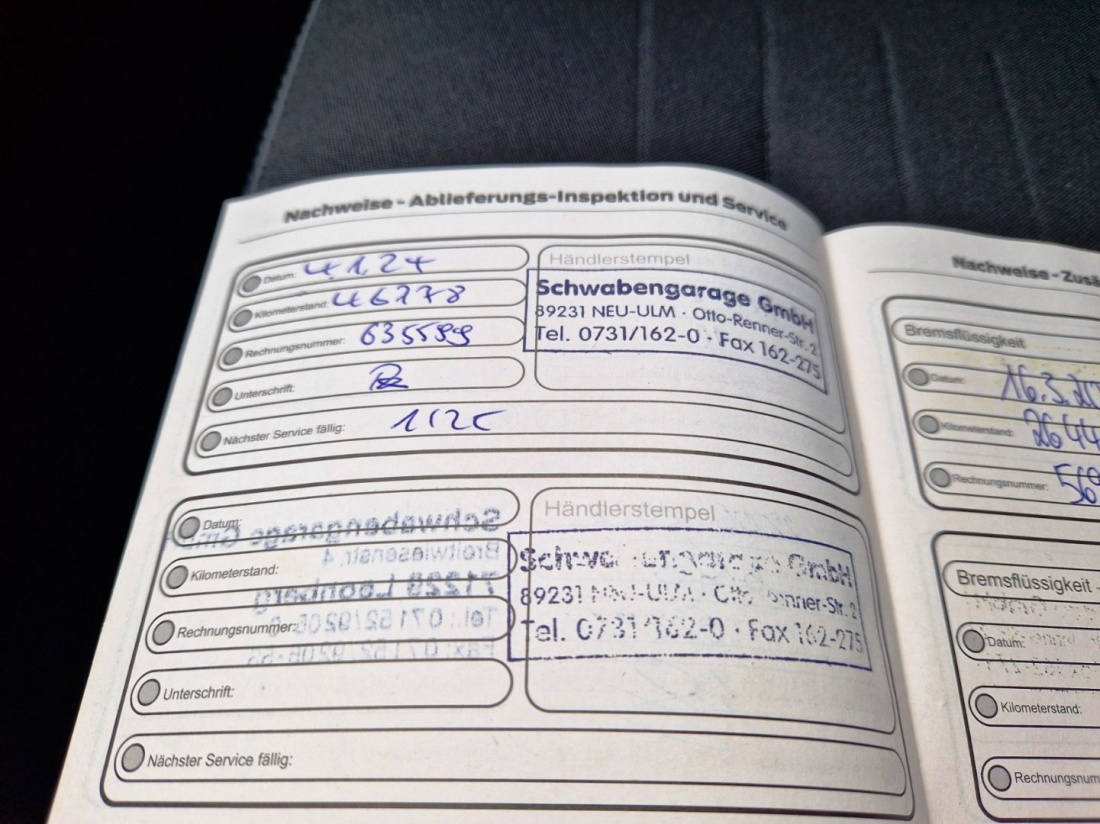 Nachweise - Ablieferungs-Inspektion und Service
Datum: 4.1.24
Kilometerstand: 46778
Rechnungsnummer: 635599
Unterschrift:
Nächster Service fällig: 1/25
Händlerstempel
Schwabengarage GmbH
89231 NEU-ULM · Otto-Renner-Str. 2
Tel. 0731/162-0 · Fax 162-275
Datum:
Kilometerstand:
Rechnungsnummer:
Unterschrift:
Nächster Service fällig:
Händlerstempel
Schwabengarage GmbH
89231 NEU-ULM · Otto-Renner-Str. 2
Tel. 0731/162-0 · Fax 162-275
Schwabengarage GmbH
Breitwiesenstr. 4
71229 Leonberg
Tel.: 07152/9206-0
Fax: 07152/9206-53
Nachweise - Zusä
Bremsflüssigkeit
Datum: 16.3.20
Kilometerstand: 2644
Rechnungsnummer: 568
Bremsflüssigkeit -
Datum:
Kilometerstand:
Rechnungsnum